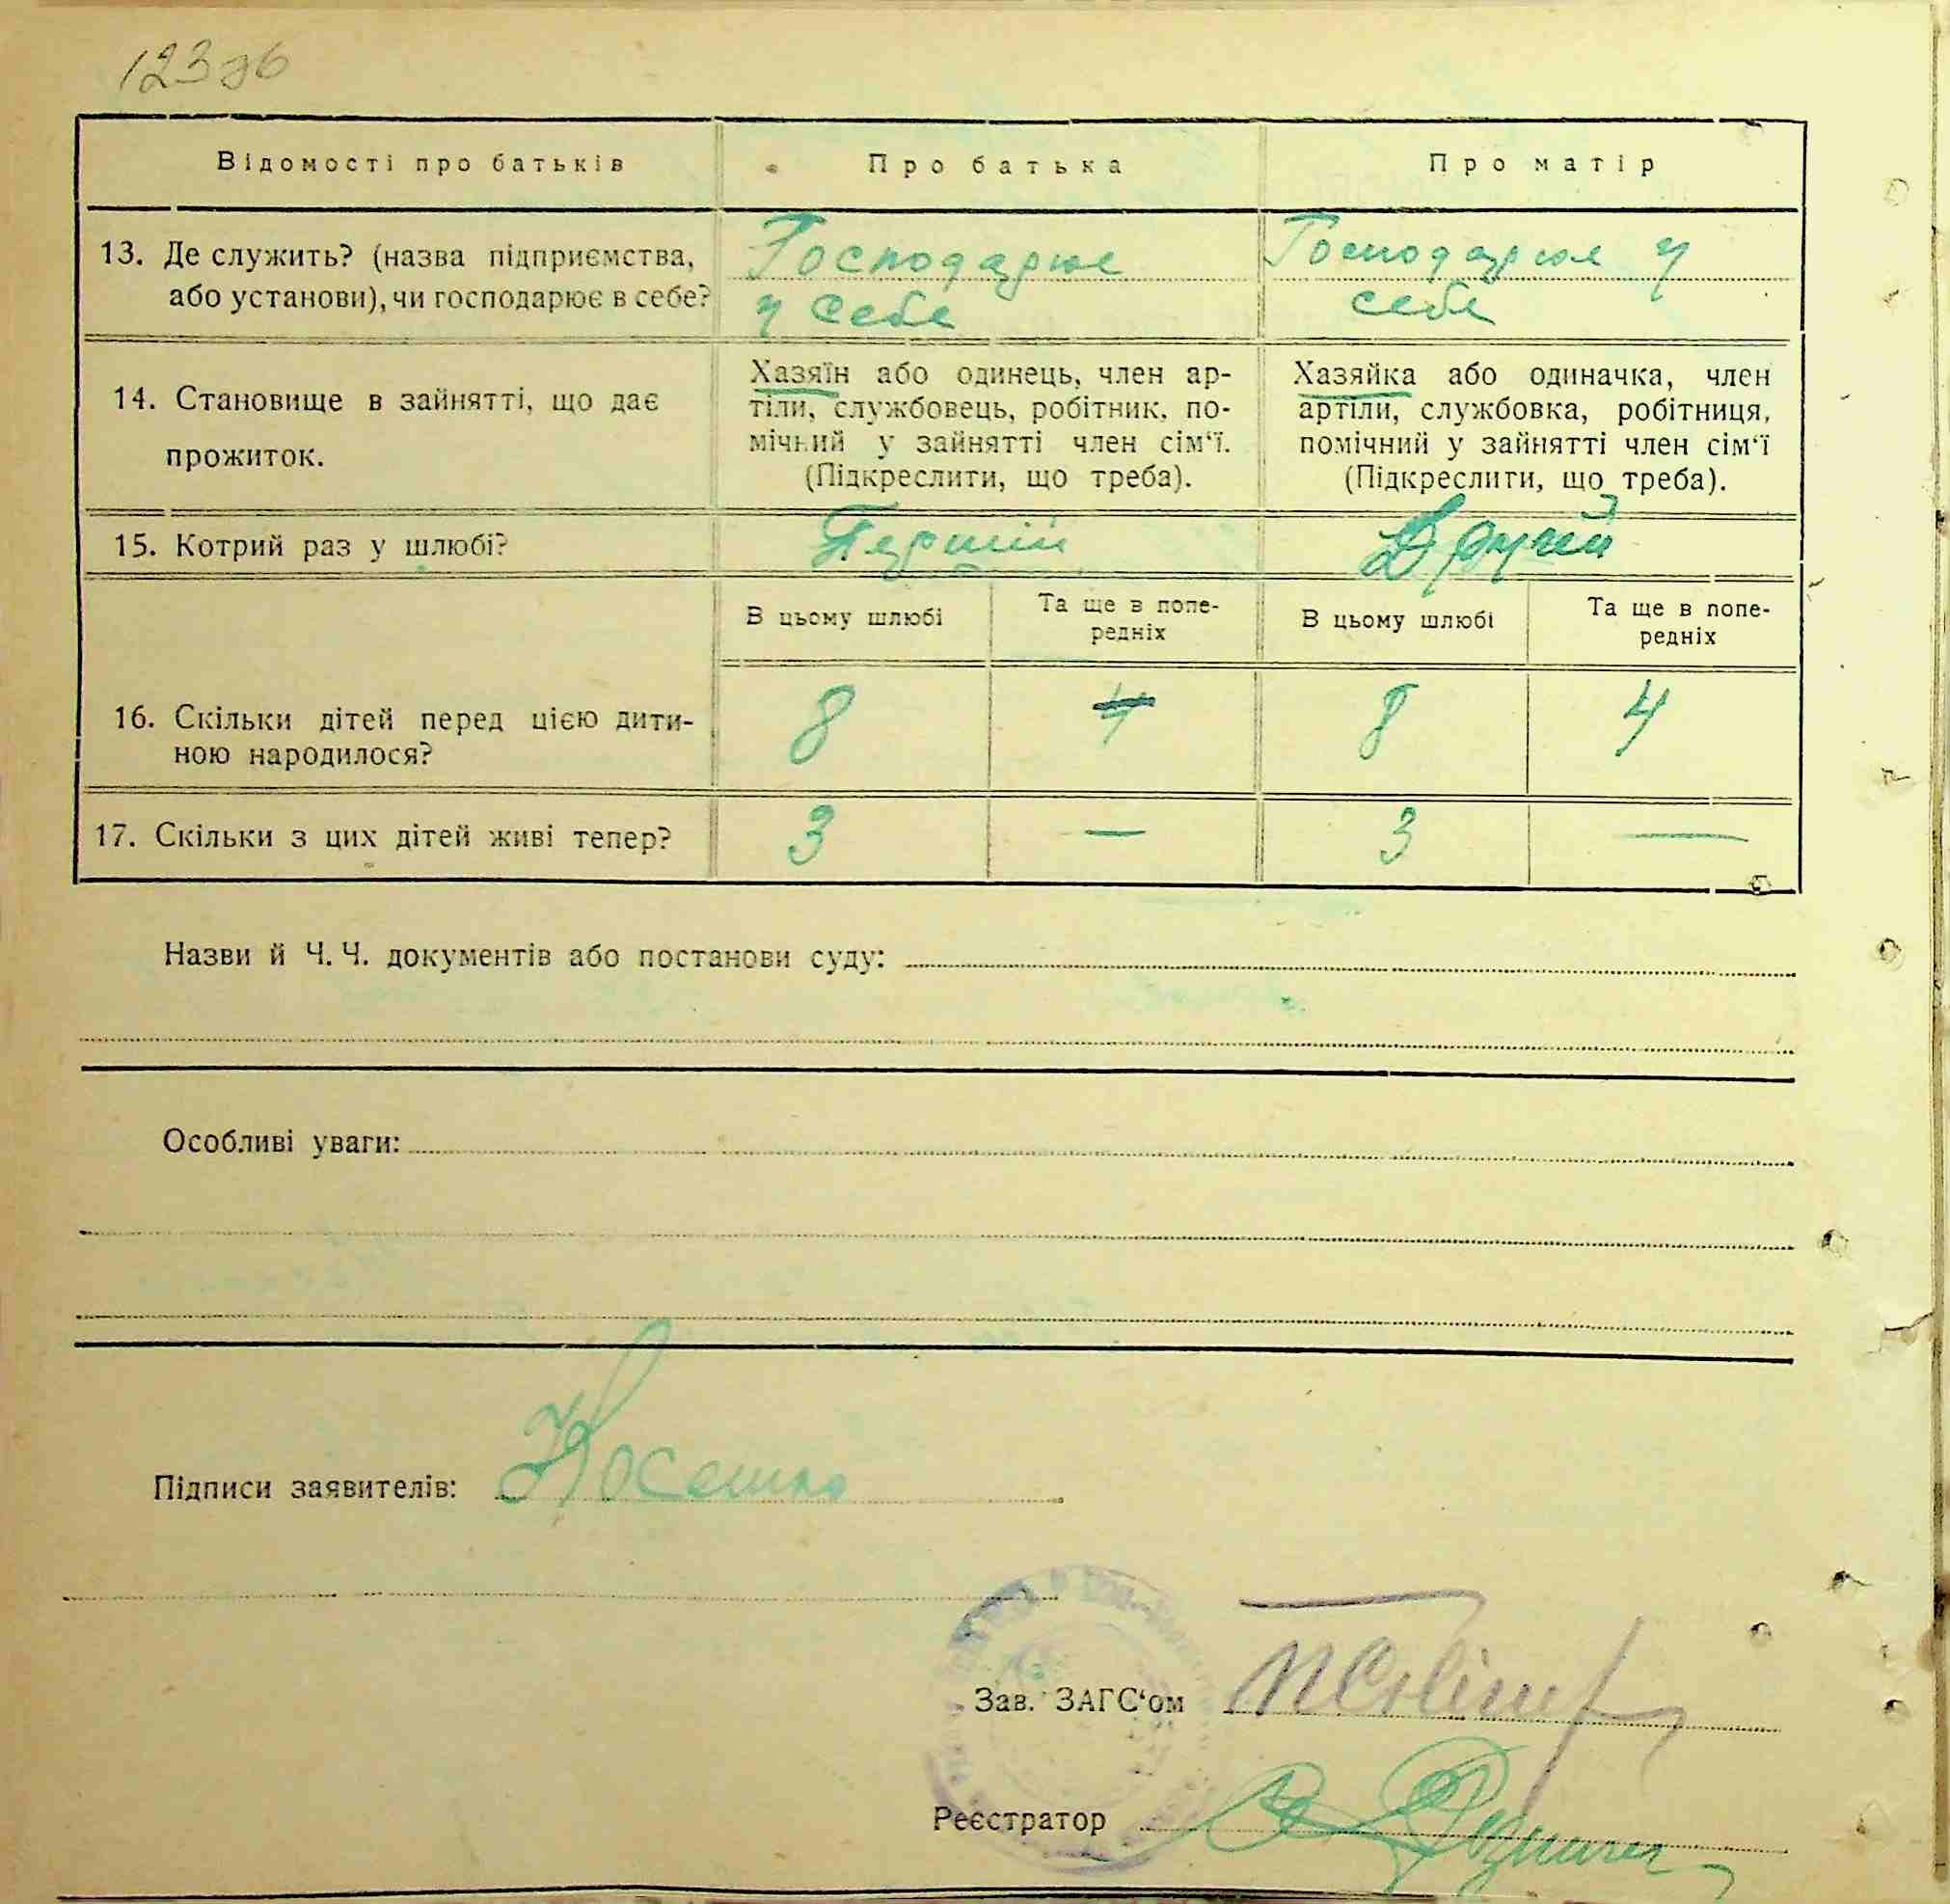 123 зв
Відомості про батьків
Про батька
Про матір
13. Де служить? (назва підприємства,
або установи), чи господарює в себе?
Господарює
у себе
Господарює у
себе
14. Становище в зайнятті, що дає
прожиток.
Хазяїн або одинець, член ар-
тіли, службовець, робітник, по-
мічний у зайнятті член сім‘ї.
(Підкреслити, що треба).
Хазяйка або одиначка, член
артіли, службовка, робітниця,
помічний у зайнятті член сім‘ї
(Підкреслити, що треба).
15. Котрий раз у шлюбі?
Перший
Другий
В цьому шлюбі
Та ще в попе-
редніх
В цьому шлюбі
Та ще в попе-
редніх
16. Скільки дітей перед цією дити-
ною народилося?
8
4
8
4
17. Скільки з цих дітей живі тепер?
3
—
3
—
Назви й Ч. Ч. документів або постанови суду:
Особливі уваги:
Підписи заявителів:
Зав. ЗАГС‘ом
Реєстратор